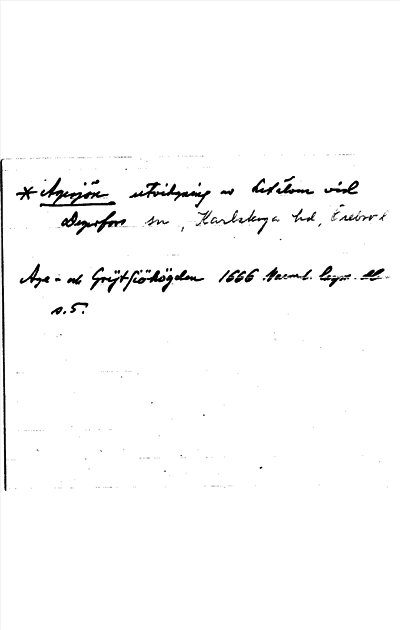 * Agesjön utvidgning av Letälven vid
Degerfors sn, Karlskoga hd, Örebro l
Age- och Grytsiöhögden 1666 Värml.
s. 5.